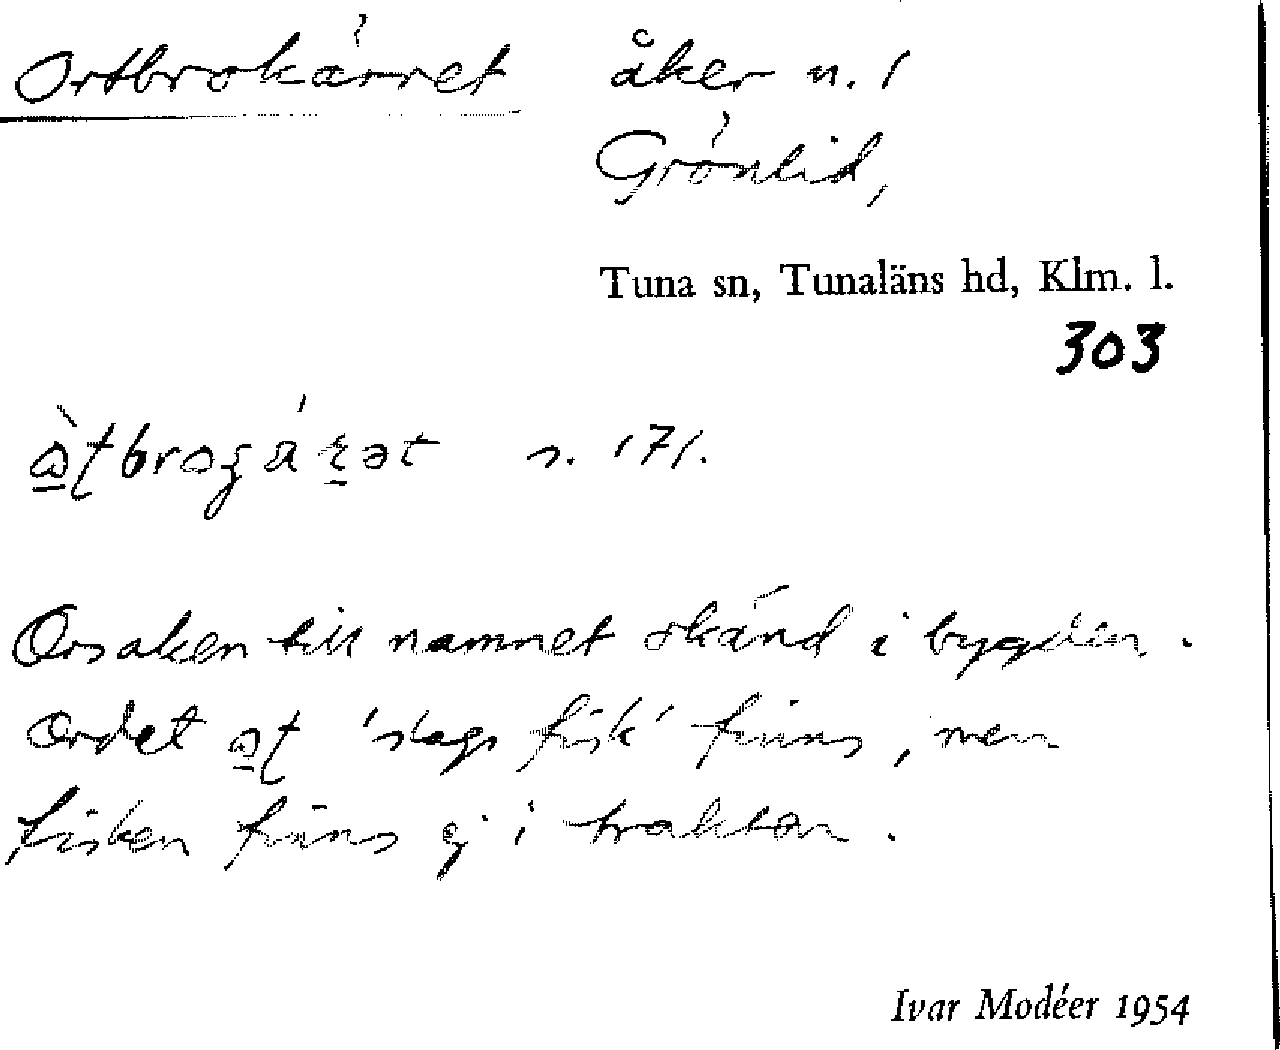 Ortbrokärret åker n. 1
Grönlid,
Tuna sn, Tunaläns hd, Klm. l.
303
s. 171.
Orsaken till namnet okänd i bygden.
Ordet 'slags fisk' finns, men
fisken finns ej i trakten.
Ivar Modéer 1954